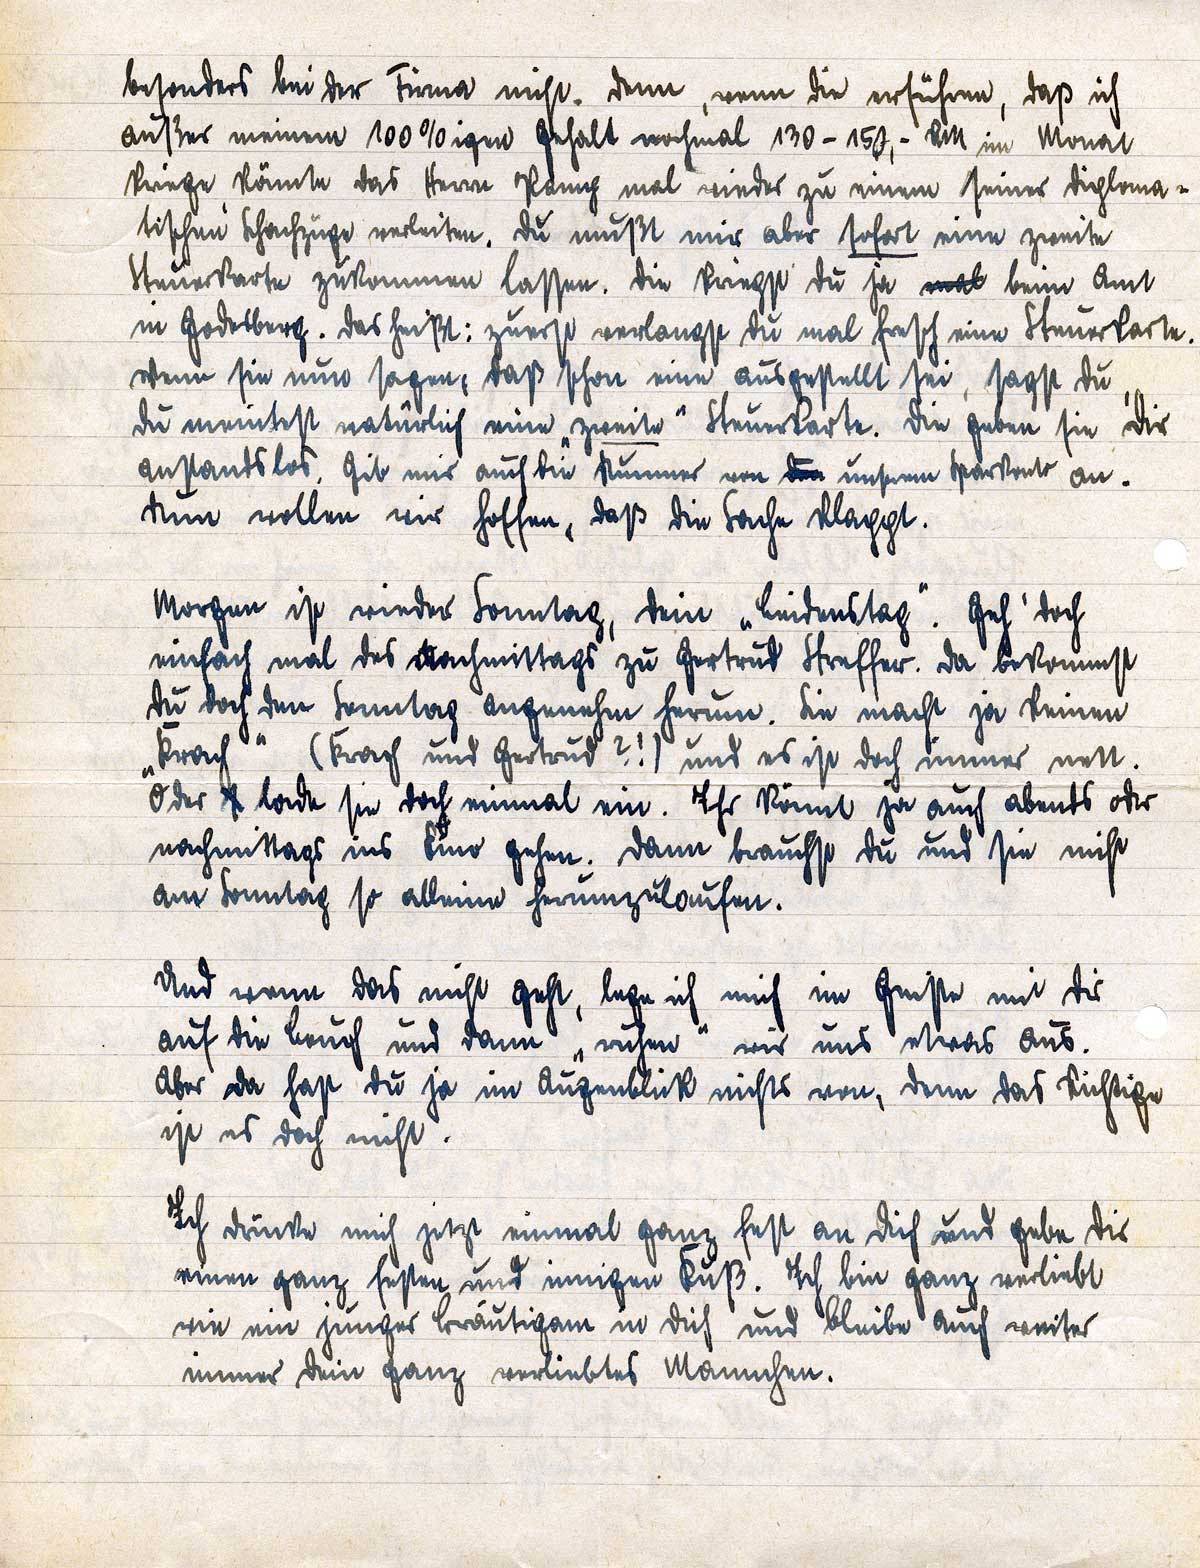 besonders bei der Firma nicht. Denn, wenn die erführen, daß ich
außer meinem 100%igen Gehalt nochmal 130 - 150,- RM im Monat
kriege, könnte das Herrn mal wieder zu einem seiner diploma-
tischen Schachzüge verleiten. Du mußt mir aber sofort eine zweite
Steuerkarte zukommen lassen. Die kriegst du ja beim Amt
in Godesberg. Das heißt: zuerst verlangst du mal fresch eine Steuerkarte.
Wenn sie nun sagen, daß schon eine ausgestellt sei, sagst du,
du meintest natürlich eine „zweite" Steuerkarte. Die geben sie Dir
anstandslos. Gib mir auch die Nummer von unserem Sparkonto an.
Nun wollen wir hoffen, daß die Sache klappt.
Morgen ist wieder Sonntag, dein „Leidenstag". Geh' doch
einfach mal des Nachmittags zu Gertrud Streffer. Da bekommst
du doch den Sonntag angenehm herum. Sie macht ja keinen
„Krach" (Krach und Gertrud?!) und es ist doch immer nett.
Oder lade sie doch einmal ein. Ihr könnt ja auch abends oder
nachmittags ins Kino gehen. Dann brauchst du und sie nicht
am Sonntag so alleine herumzulaufen.
Und wenn das nicht geht, lege ich mich im Geiste mit Dir
auf die Couch und dann „ruhen" wir uns etwas aus.
Aber da hast du ja im Augenblick nichts von, denn das Richtige
ist es doch nicht.
Ich drücke mich jetzt einmal ganz fest an Dich und gebe Dir
einen ganz festen und innigen Kuß. Ich bin ganz verliebt
wie ein junger Bräutigam in Dich und bleibe auch weiter
immer Dein ganz verliebtes Mannchen.